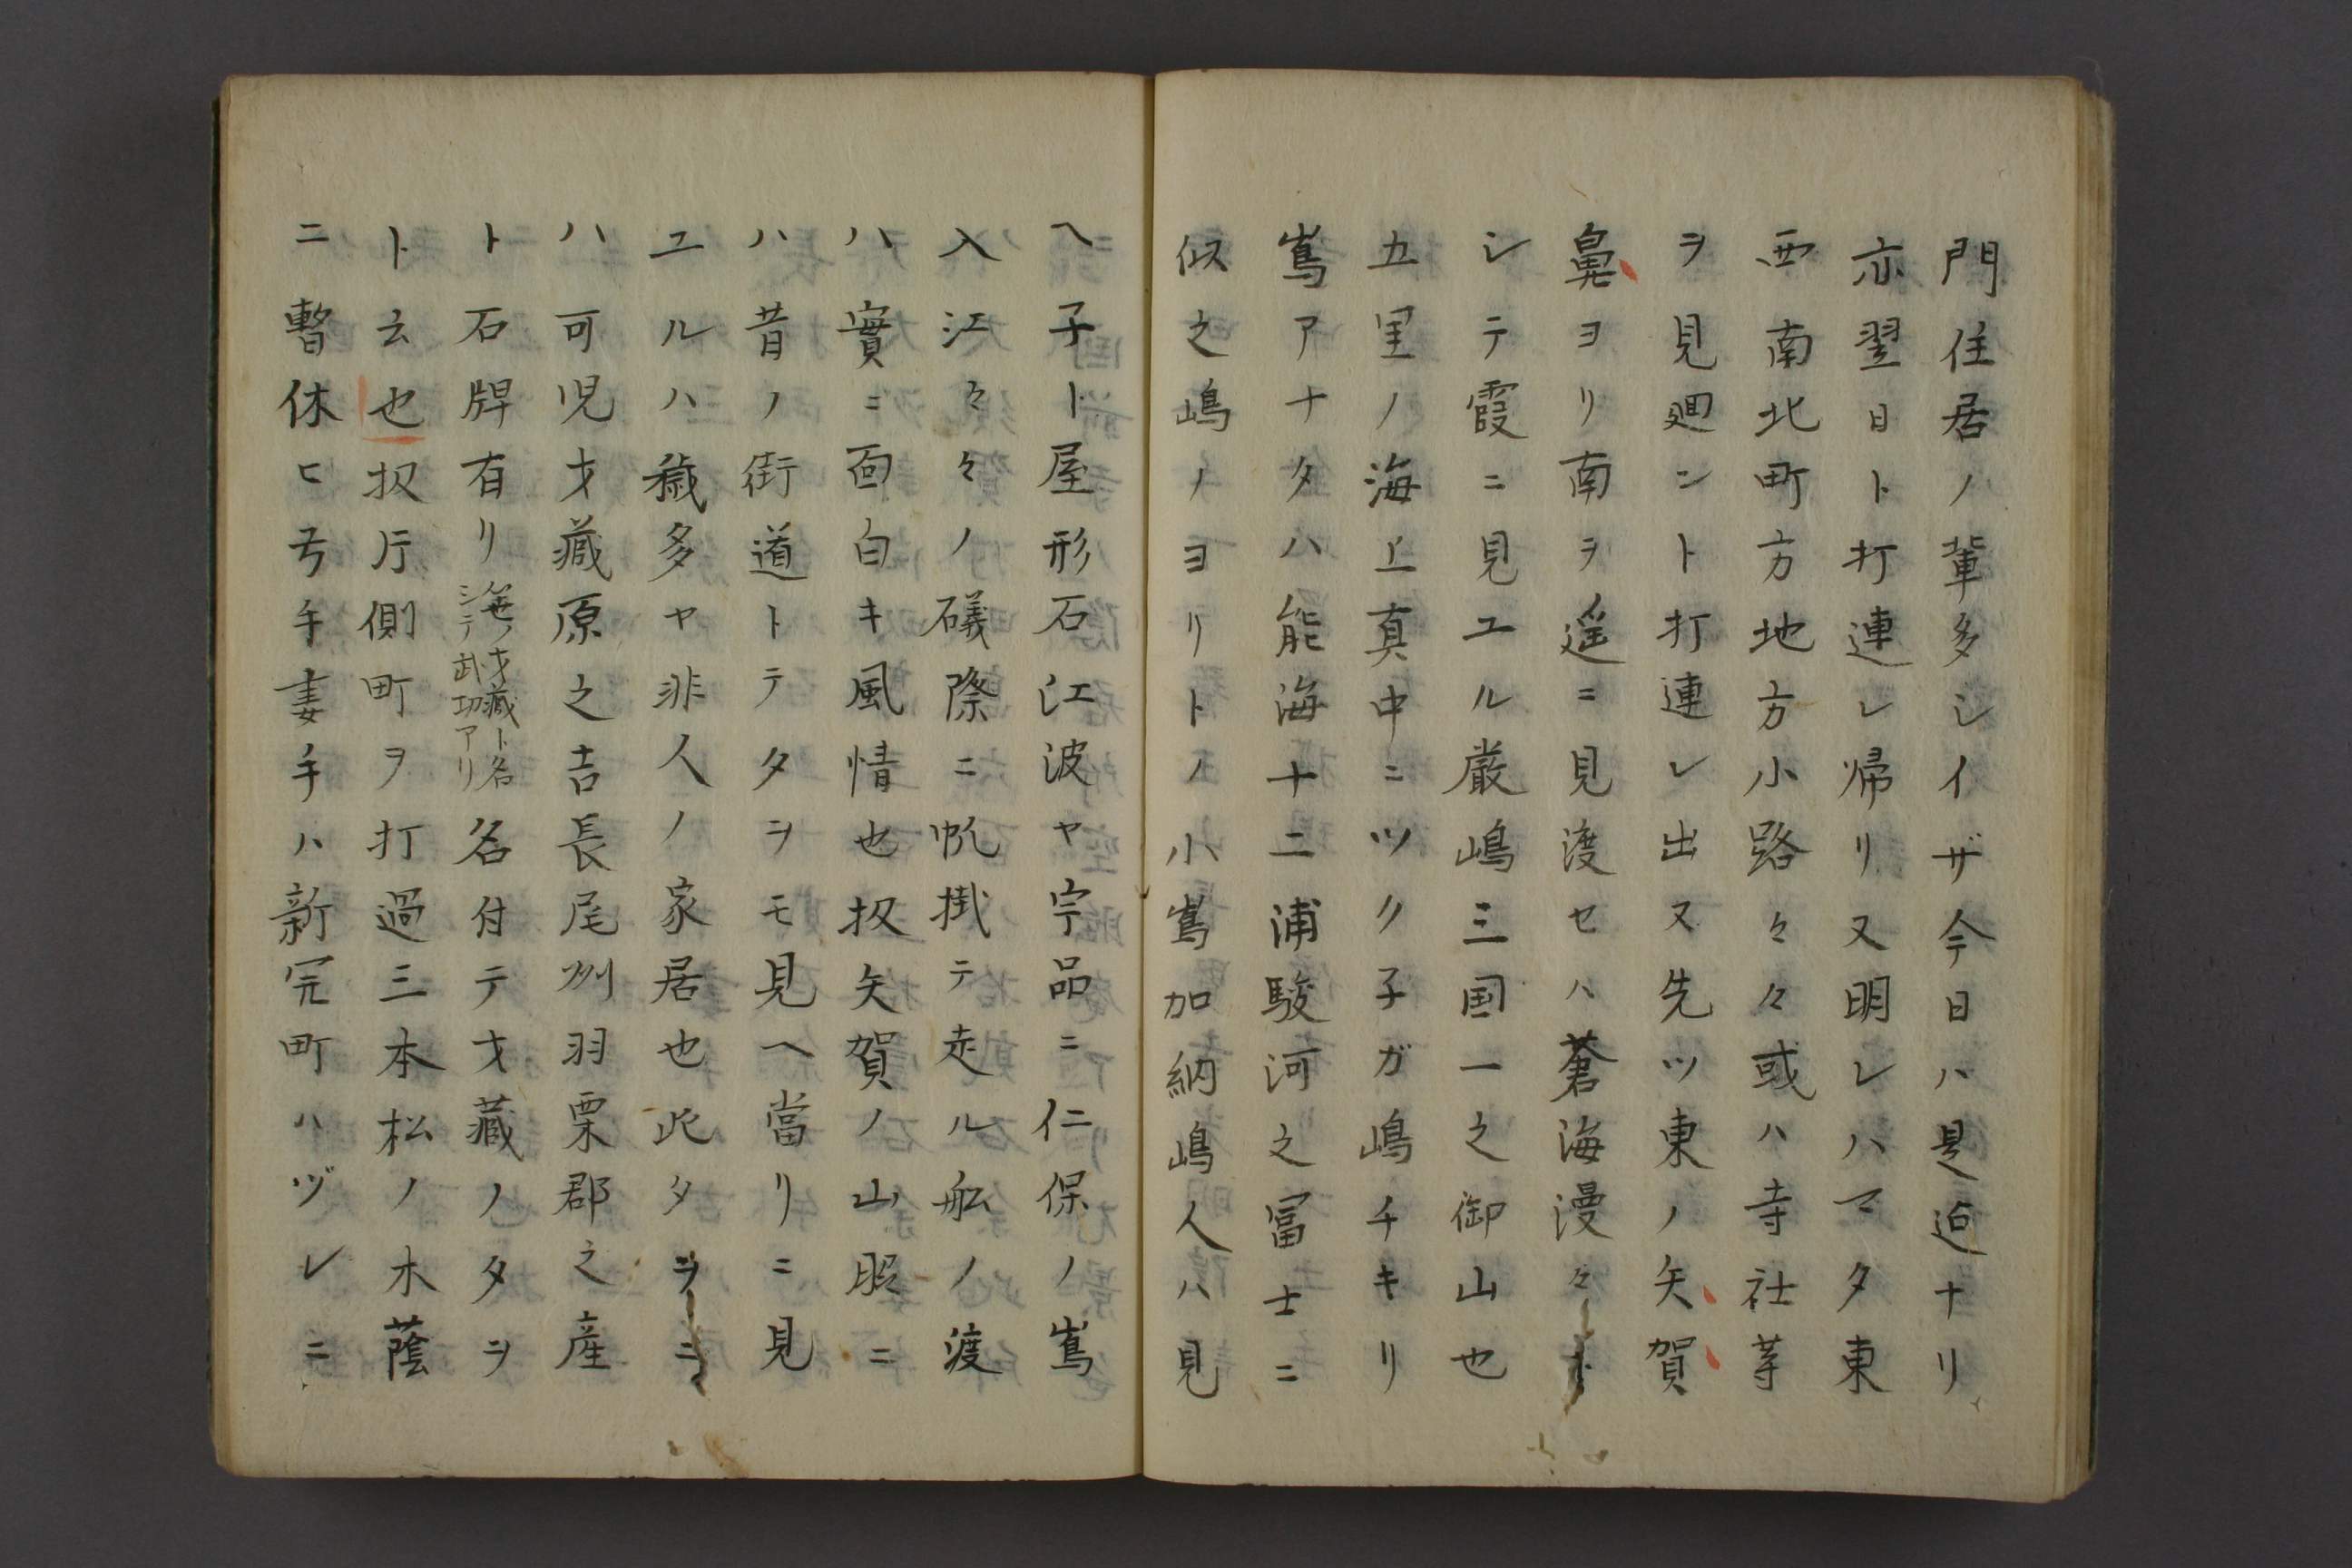 門住居ノ輩多シイザ今日ハ是迠ナリ
亦翌日ト打連レ帰リ又明レハマタ東
西南北町方地方小路々々或ハ寺社等
ヲ見廻ント打連レ出ヌ先ツ東ノ矢賀
鼻ヨリ南ヲ遥ニ見渡セハ蒼海漫々ト
シテ霞ニ見エル厳嶋三国一之御山也
五里ノ海上真中ニツク子ガ嶋チキリ
嶌アナタハ能海十二浦駿河之冨士ニ
似之嶋ノヨリトノ小嶌加納嶋人ハ見
ヘ子ト屋形石江波ヤ宇品ニ仁保ノ嶌
入江々々ノ礒際ニ帆掛テ走ル舩ノ渡
ハ實ニ面白キ風情也扨矢賀ノ山際ニ
ハ昔ノ街道トテタヲモ見ヘ當リニ見
エルハ穢多ヤ非人ノ家居也此タヲニ
ハ可児才藏原之吉長尾州羽栗郡之産
ト石牌有リ
笹ノ才藏ト名
シテ武功アリ
名付テ才藏ノタヲ
ト云也扨片側町ヲ打過三本松ノ木蔭
ニ暫休ヒ弓手妻手ハ新完町ハヅレニ